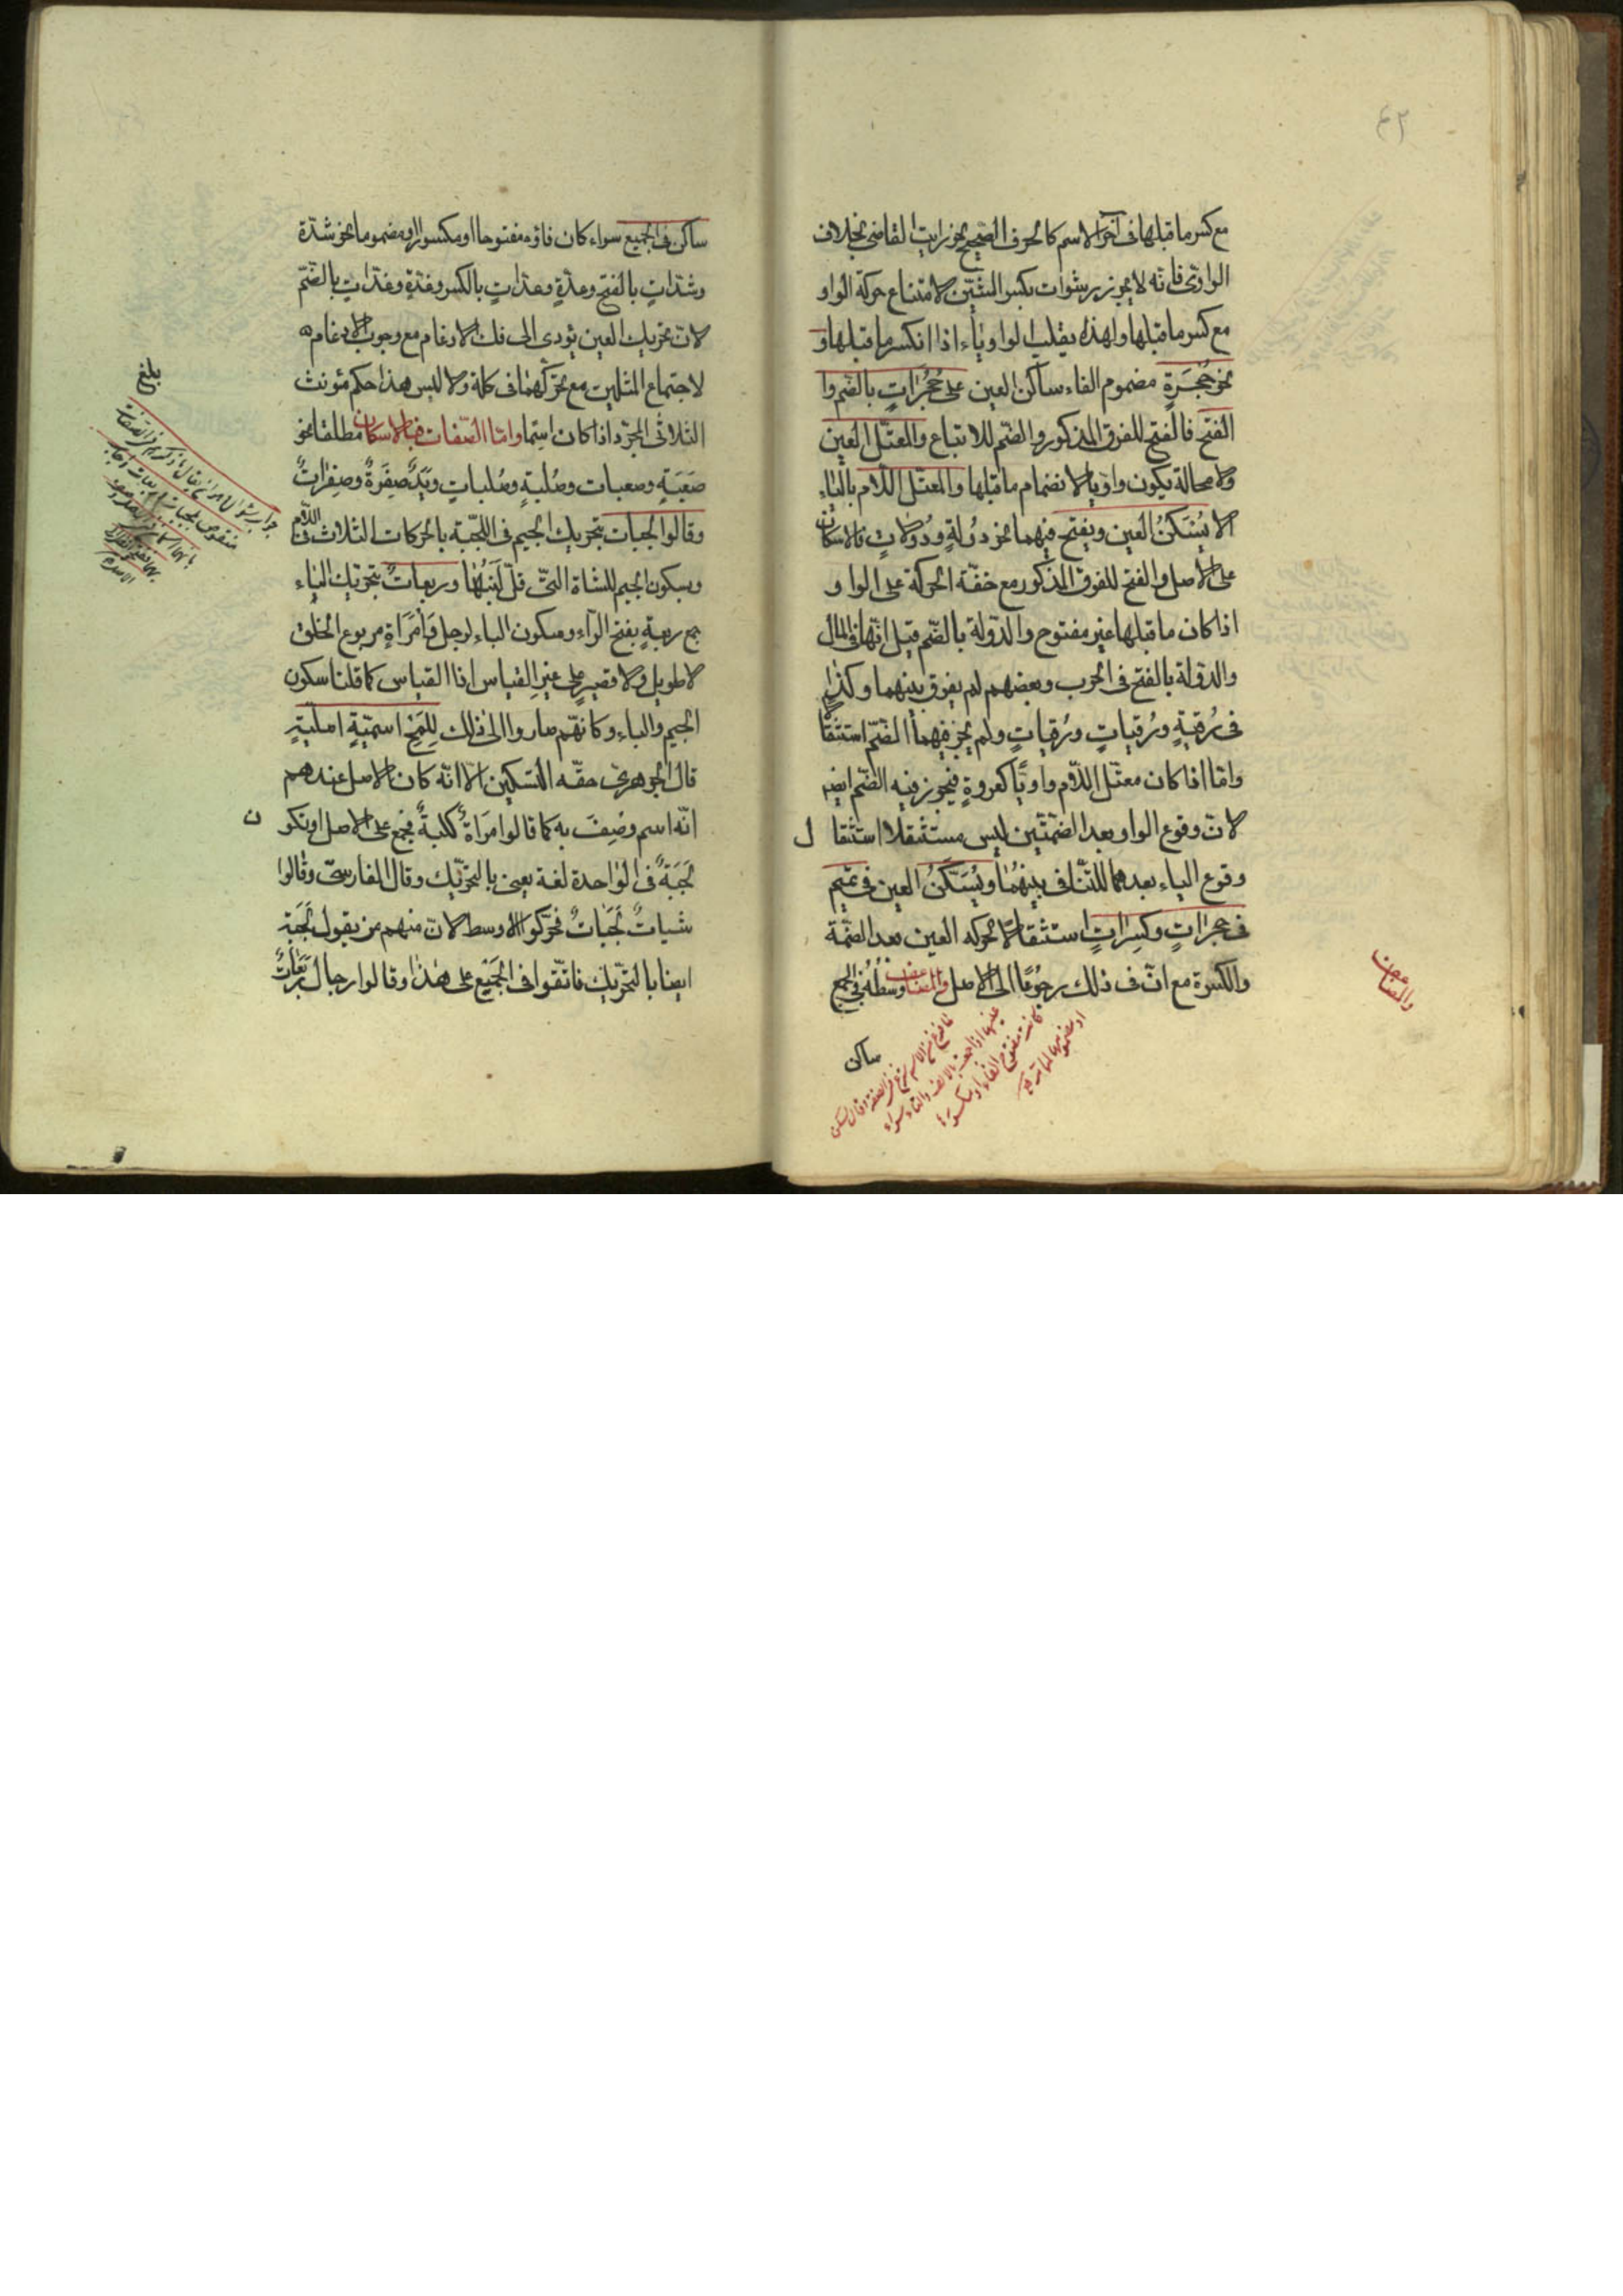 ٤٢
مع كسر ما قبلها فى آخر الاسم كالحرف الصحيح نحو رايت القاضى بخلاف
الواوىّ فانّه لا يجوز رشوات بكسر الشين لامتناع حركة الواو
مع كسر ما قبلها ولهذا يقلب الواو ياء اذا انكسر ما قبلها و
نحو حُجْرَةٍ مضموم الفاء ساكن العين على حُجُراتٍ بالضم وا
الفتح فالفتح للفرق المذكور والضم للاتباع والمعتل العين
ولا محالة يكون واويا لانضمام ما قبلها والمعتل اللام بالياء
لا يُسَكَّنُ العين ويفتح فيهما نحو دُولةٍ ودُولاتٍ فالاسكان
على الاصل والفتح للفرق المذكور مع خفّة الحركة على الواو
اذا كان ما قبلها غير مفتوح والدّولة بالضّم قيل انّها فى المال
والدَّولة بالفتح فى الحرب وبعضهم لم يفرق بينهما وكذا
فى رُقيةٍ ورُقياتٍ ورُقَياتٍ ولم يجز فيهما الضّم استثقا
وامّا اذا كان معتّل اللّام واويًّا كعروةٍ فيجوز فيه الضّم ايضا
لانّ وقوع الواو بعد الضمّتين ليس مستثقلا استثقا ل
وقوع الياء بعدهما للتنافى بينهُما ويُسَكَّنُ العين فى تميم
فى حجراتٍ وكسراتٍ استثقالا لحركه العين بعد الضمّة
والكسرة مع انّ فى ذلك رجُوعًا الى الاصل والمضاعف وسطُهُ فى الجمع
والمضاعف
ساكن
ساكن فى الجميع سواء كان فاؤه مفتوحا او مكسورا او مضموما نحو شدّة
وشدّاتٍ بالفتح وعدّةٍ وعدّاتٍ بالكسر وغدّةٍ وغدّاتٍ بالضّم
لانّ تحريك العين يؤدى الى فك الادغام مع وجوب الادغام
لاجتماع المثلين مع تحرّكهما فى كلمة ولا لبس هذا حكم مؤنث
الثلاثى المجرّد اذا كان اسما وامّا الصّفات فبالاسكان مطلقا نحو
صَعْبَةٍ وصعبات وصُلبةٍ وصُلباتٍ ويَدٌ صِفْرَةٌ وصِفْراتٌ
وقالوا لجبات بتحريك الجيم فى اللّجبة بالحركات الثلاث فى اللّام
وبسكون الجيم للشاة التى قلّ لَبَنُها وربعاتٌ بتحريك الباء
جمع ربعةٍ بفتح الرّاء وسكون الباء لرجل وامْرَاةٍ مربوع الخلق
لا طويل ولا قصيرٍ على غير القياس اذ القياس كما قلنا سكون
الجيم والباء وكانّهم صاروا الى ذلك لِلَمْحِ اسميّةٍ اصليّةٍ
قال الجوهرىّ حقّه التسكين الّا انّه كان الاصل عندهم
انّه اسم وُصِفَ به كما قالوا امرَاةٌ كلبةٌ فجمع على الاصل او تكو ن
لَجَبَةٌ فى الواحدة لغة يعنى بالتحريك وقال الفارسىّ وقالوا
شياتٌ لَجَباتٌ فحرّكوا الاوسط لانّ منهم من يقول لَجَبَة
ايضا بالتحريك فاتّفقوا فى الجَمِيْع على هذا وقالوا رجال رَبَعَاتٌ
بلغ